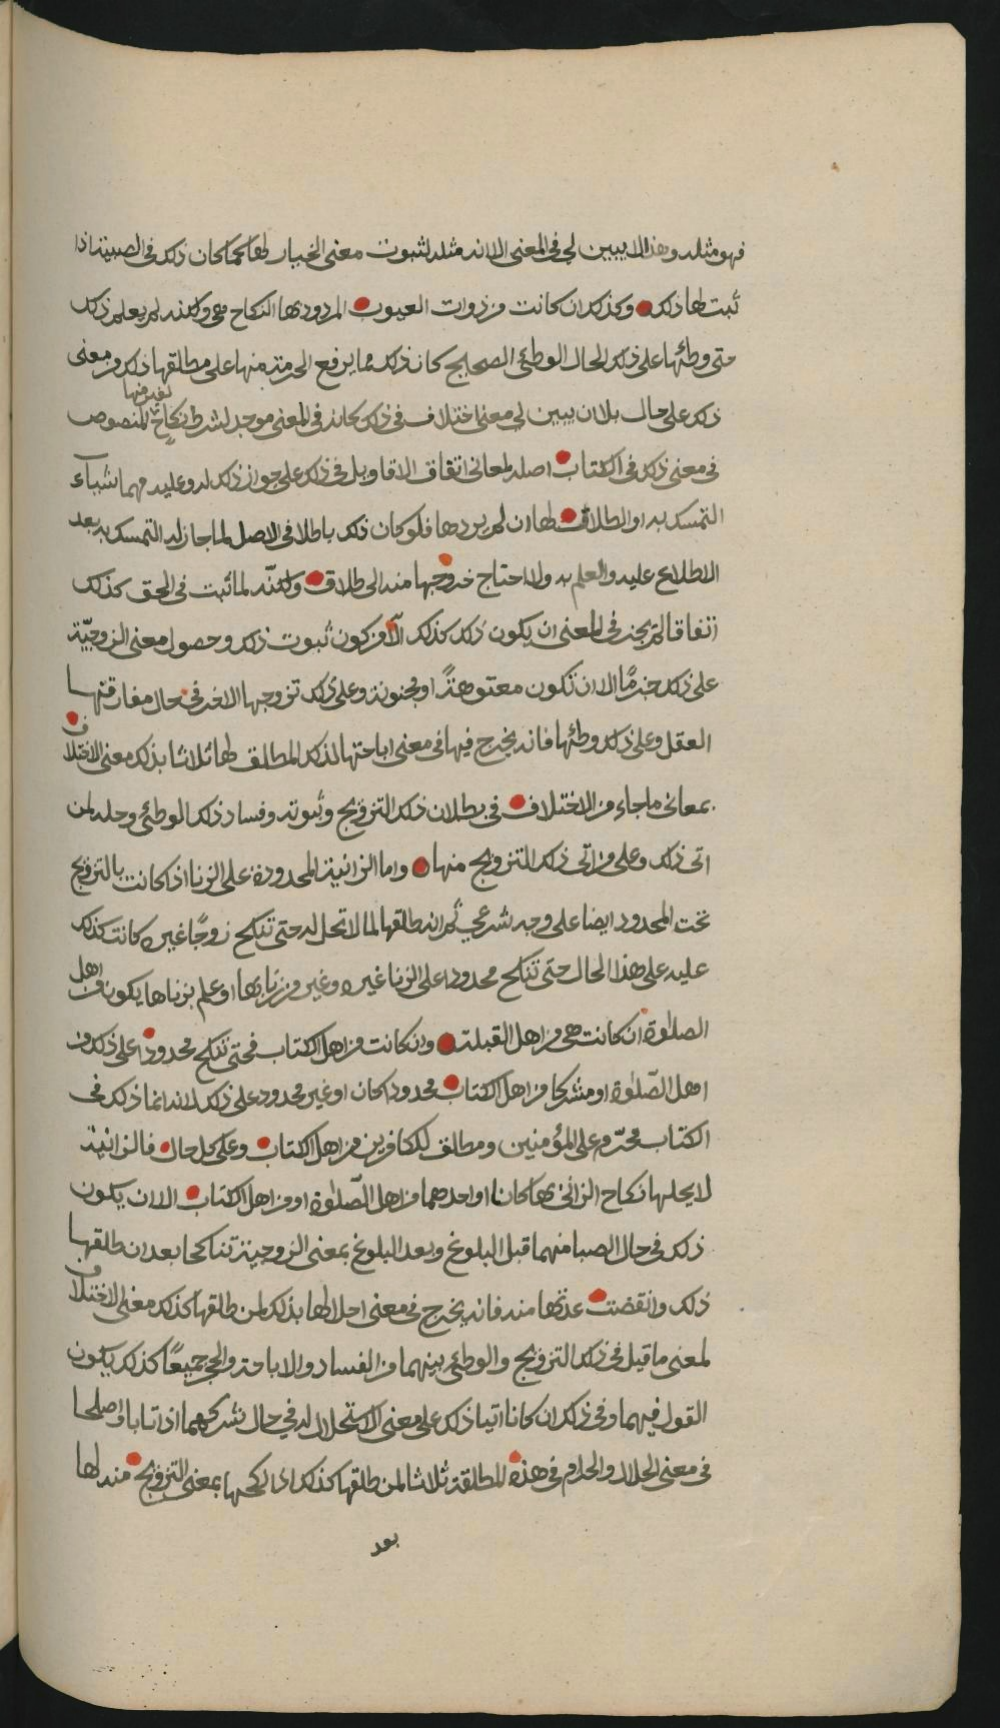 فهو مثله وهذا لا يبين لي في المعنى الا انه مثله لثبوت معنى الخيار لها كما كان ذلك في الصبية اذا
ثبت لها ذلك وكذلك ان كانت من ذوات العيوب المردود بها النكاح هي ولكنه لم يعلم ذلك
حتى وطئها على ذلك الحال الوطئ الصحيح كان ذلك مما يرفع الحرمة منها على مطلقها ذلك ومعنى
ذلك على حال بلا ان يبين لي معنى اختلاف في ذلك كانه في المعنى موجد لشرط نكاح لغيره منها المنصوص
في معنى ذلك في الكتاب اصله لمعاني اتفاق الاقاويل في ذلك على جواز ذلك له وعليه مهما شاء
التمسك به او الطلاق لها ان لم يردها فلو كان ذلك باطلا في الاصل لما جاز له التمسك به بعد
الاطلاع عليه والعلم به ولا احتاج خروجها منه الى طلاق ولكنّه لما ثبت في الحق كذلك
اتفاقا لم يجز في المعنى ان يكون ذلك كذلك الّا من كون ثبوت ذلك وحصول معنى الزوجيّة
على ذلك جزمًا الا ان تكون معتوهةً او مجنونة وعلى ذلك تزوجها الاخر في حال مفارقتها
العقل وعلى ذلك وطئها فانه يخرج فيها في معنى اباحتها لذلك المطلق لها ثلاثا بذلك معنى الاختلاف
بمعاني ما جاء من الاختلاف في بطلان ذلك التزويج وثبوته وفساد ذلك الوطئ وحله لمن
اتى ذلك وعلى من اتى ذلك التزويج منها واما الزانية المحدودة على الزنا اذا كانت بالتزويج
تحت المحدود ايضا على وجه شرعي ثم انه طلقها لما لا تحل له حتى تنكح زوجًا غيره كانت كذلك
عليه على هذا الحال حتى تنكح محدودا على الزنا غيره وغير من زنا بها او علم بزناها يكون من اهل
الصلوة ان كانت هي من اهل القبلة وان كانت من اهل الكتاب فحتى تنكح محدودا على ذلك من
اهل الصّلوة او مشركا من اهل الكتاب محدودا كان او غير محدود على ذلك لانه انما ذلك في
الكتاب محرّم على المؤمنين ومطلق للكافرين من اهل الكتاب وعلى كل حال فالزانية
لا يحلها نكاح الزاني بها كانا او احدهما من اهل الصّلوة او من اهل الكتاب الا ان يكون
ذلك في حال الصبا منهما قبل البلوغ وبعد البلوغ بمعنى الزوجية تناكحا بعد ان طلقها
ذلك وانقضت عدتها منه فانه يخرج في معنى احلالها بذلك لمن طلقها كذلك معنى الاختلاف
لمعنى ما قيل في ذلك التزويج والوطئ بينهما من الفساد والاباحة والحجر جميعًا كذلك يكون
القول فيهما وفي ذلك ان كانا اتيا ذلك على معنى الاستحلال له في حال شركهما اذا تابا واصلحا
في معنى الحلال والحرام في هذه المطلقة ثلاثا لمن طلقها كذلك اذا نكحها بمعنى التزويج منه لها
بعد